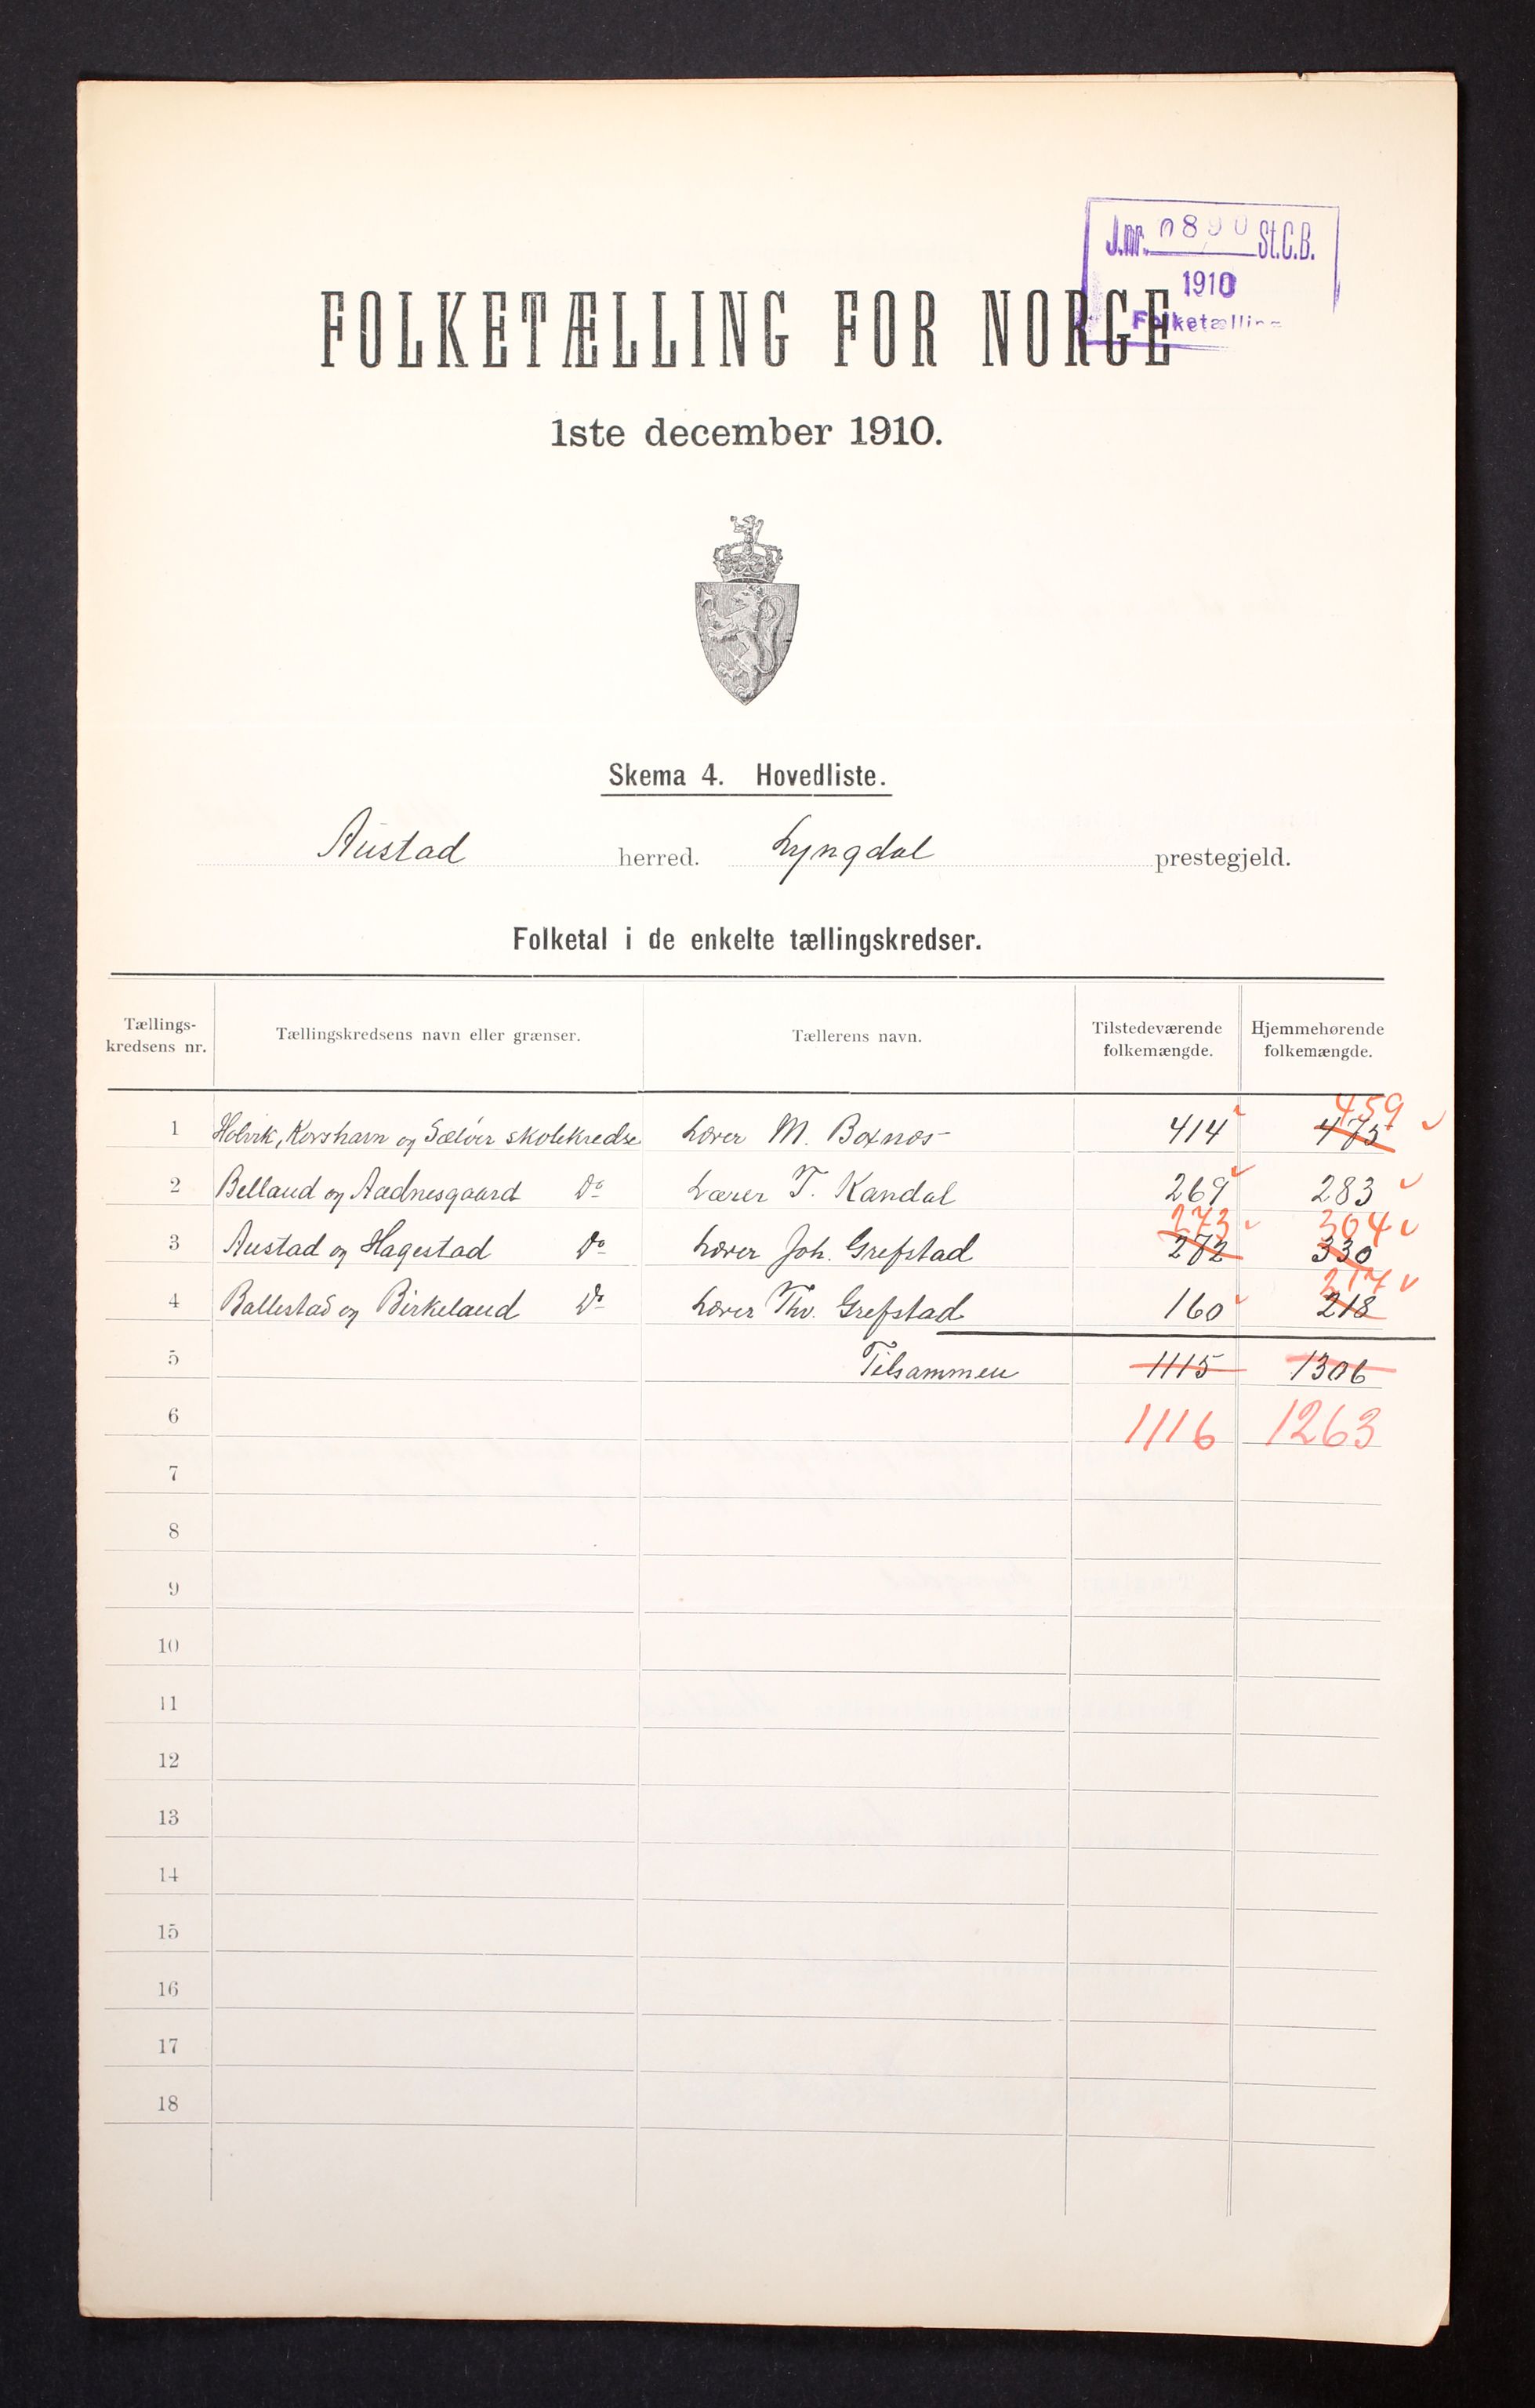 J.nr. St.C.B.
1910
Folketælling
FOLKETÆLLING FOR NORGE
1ste december 1910.
Skema 4. Hovedliste.
Austad herred. Lyngdal prestegjeld.
Folketal i de enkelte tællingskredser.
Tællings-kredsens nr. Tællingskredsens navn eller grænser. Tællerens navn. Tilstedeværende folkemængde. Hjemmehørende folkemængde.
459
1 Holvik, Korshavn og Sæløer skolekredse Lærer M. Boxnæs 414 475
2 Belland og Aadnesgaard Do Lærer T. Kandal 269 283
273 304
3 Austad og Hagestad Do Lærer Joh. Grefstad 272 330
217
4 Ballestad og Birkeland Do Lærer Thv. Grefstad 160 218
5 Tilsammen 1115 1306
6 1116 1263
7
8
9
10
11
12
13
14
15
16
17
18